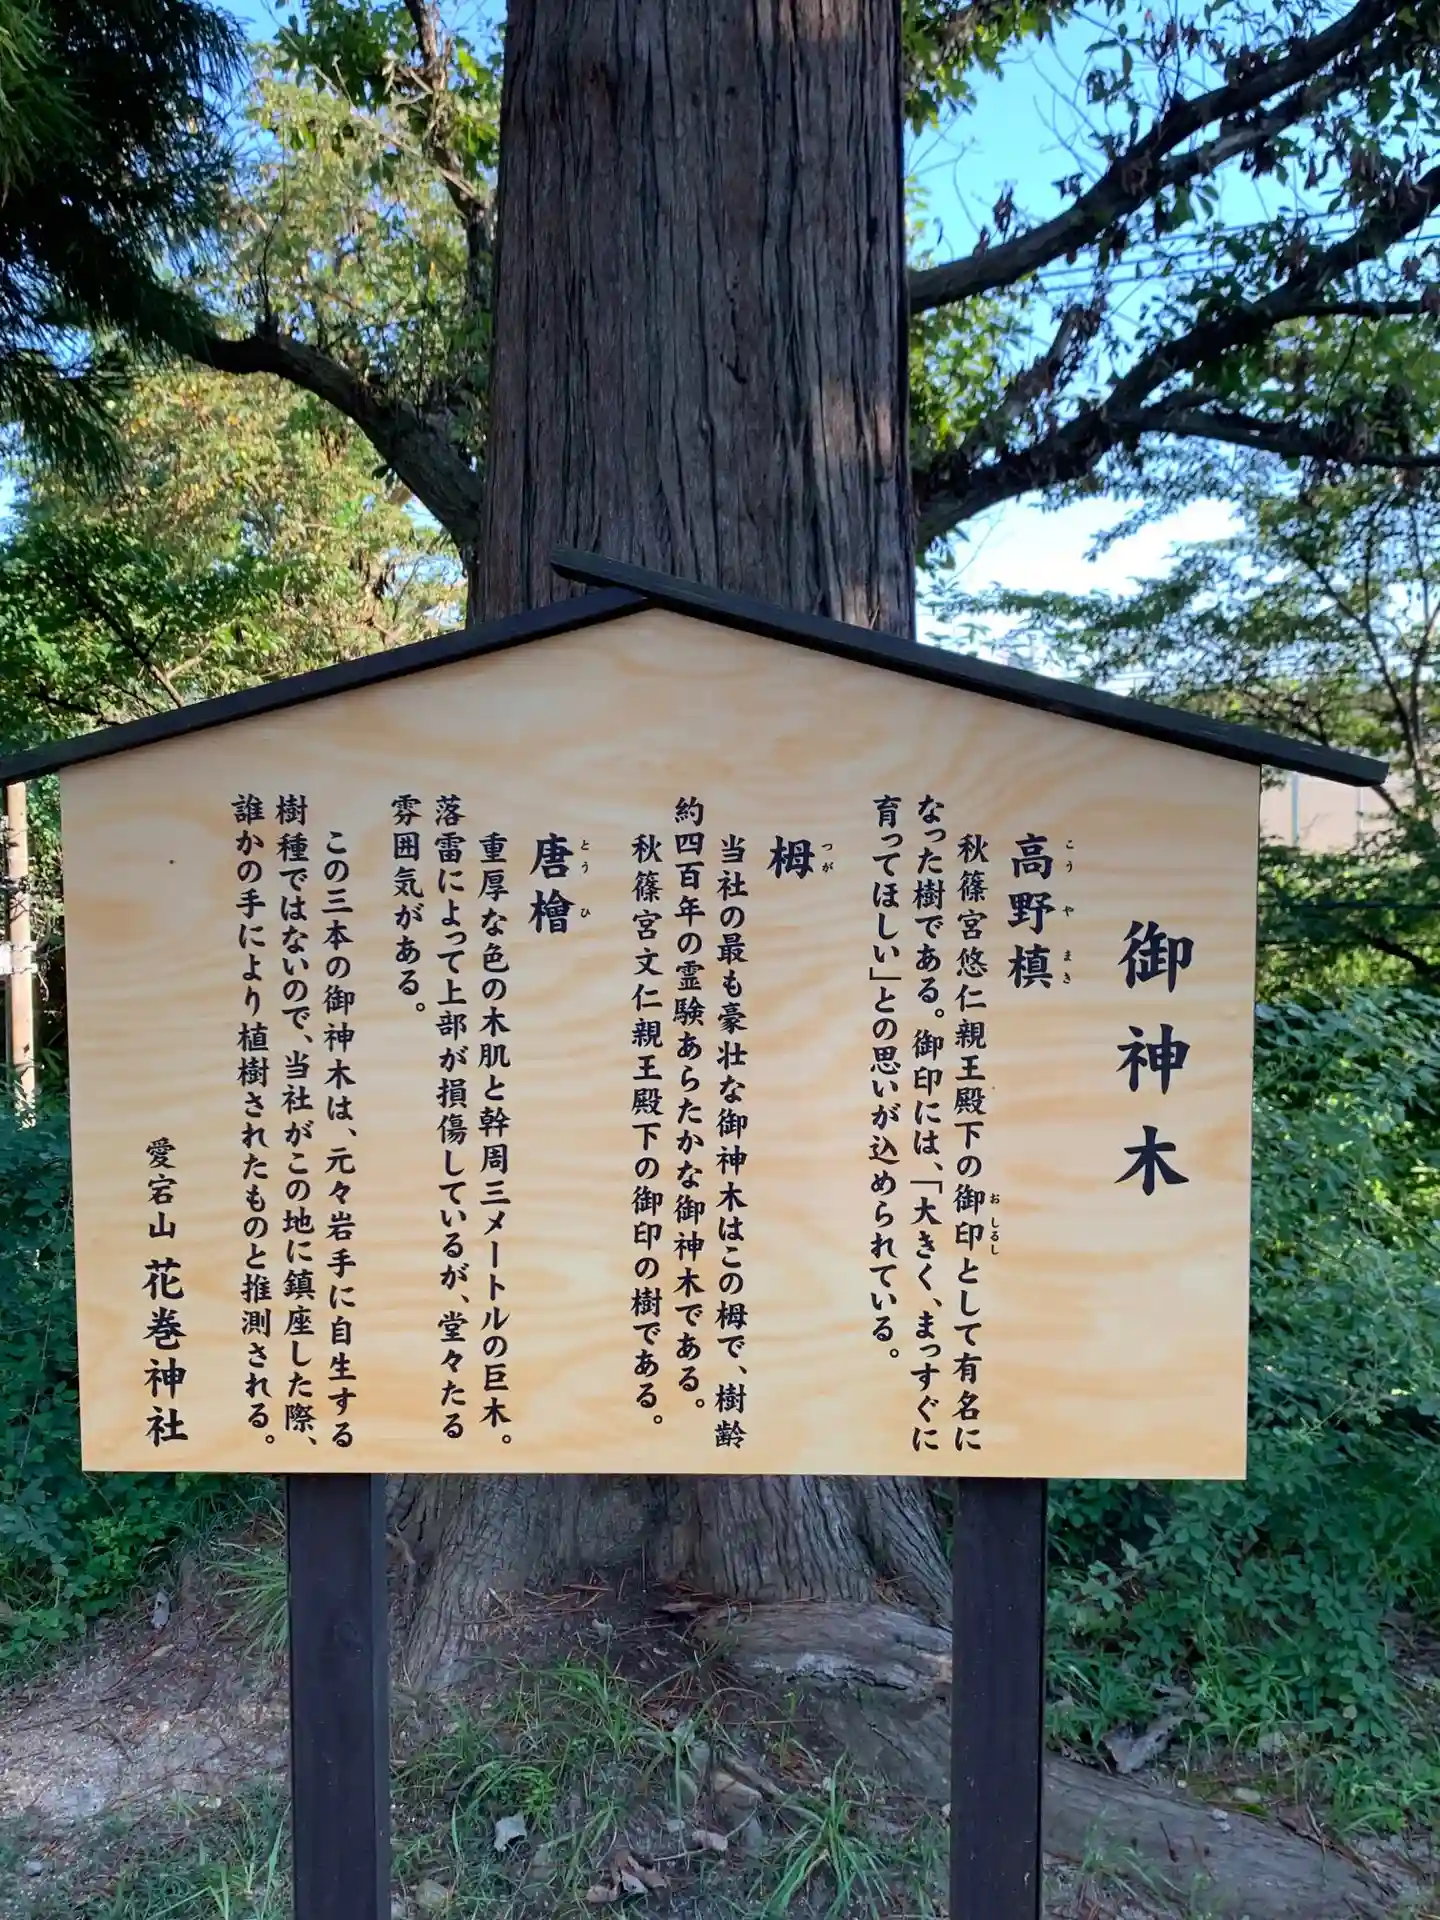 御神木
高野槙
こうやまき
秋篠宮悠仁親王殿下の御印として有名に
おしるし
なった樹である。御印には、「大きく、まっすぐに
育ってほしい」との思いが込められている。
栂
つが
当社の最も豪壮な御神木はこの栂で、樹齢
約四百年の霊験あらたかな御神木である。
秋篠宮文仁親王殿下の御印の樹である。
唐檜
とうひ
重厚な色の木肌と幹周三メートルの巨木。
落雷によって上部が損傷しているが、堂々たる
雰囲気がある。
この三本の御神木は、元々岩手に自生する
樹種ではないので、当社がこの地に鎮座した際、
誰かの手により植樹されたものと推測される。
愛宕山 花巻神社